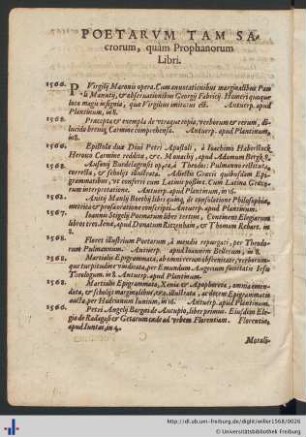 POETARVM TAM SA-
crorum, quàm Prophanorum
Libri.
1566.
P. Virgilij Maronis opera. Cum annotationibus marginalibus Pau-
li Manutij, & observationibus Georgij Fabricij. Homeri quoque
loca magis insignia, quæ Virgilius imitatus est. Antuerp. apud
Plantinum, in 8.
1568.
Præcepta & exempla de utraque copia, verborum & rerum, di-
lucida brevique Carmine comprehensa. Antuerp. apud Plantinum,
in 8.
1566.
Epistolæ duæ Divi Petri Apostoli, à Joachimo
Heroico Carmine redditæ, &c. Monachij, apud Adamum Berg. 8.
1568.
Ausonij Burdigalensis opera, à Theodor. Pulmanno
correcta, & scholijs illustrata. Adiectis Græcis quibusdam Epi-
grammatibus, ut conferri cum Latinis possint. Cum Latina Græco-
rum interpretatione. Antuerp. apud Plantinum, in 16.
1562.
Anitij Manlij Boethij libri quinque, de consolatione Philosophiæ,
Antuerp. apud Plantinum.
1567.
Ioannis Stigelij Poematum liber tertius, Continens Elegiarum
libros tres. Ienæ, apud Donatum Ritzenhain, & Thomam Rebart. in
8.
1568.
Flores illustrium Poetarum à mendis repurgati, per Theodo-
rum Pulmannum. Antuerp. apud Ioannem Bellerum, in 8.
1568.
Martialis Epigrammata, ab omni rerum obscœnitate, verborum-
que turpitudine vindicata, per Emundum Augerium societatis Iesu
Theologum. in 8. Antuerp. apud Plantinum.
1568.
Martialis Epigrammata, Xenia & Apophoreta, omnia emen-
data, & scholijs marginalibus, illustrata, ac decem Epigrammatis
aucta, per Hadrianum Iunium, in 16. Antuerp. apud Plantinum.
1566.
Petri Angelij Bargæi de Aucupio, liber primus. Eiusdem Ele-
gia de Radagasi & Getarum cæde ad urbem Florentiam. Florentiæ,
apud Iuntas, in 4.
Morali-
http://dl.ub.uni-freiburg.de/diglit/willer1568/0028
© Universitätsbibliothek Freiburg